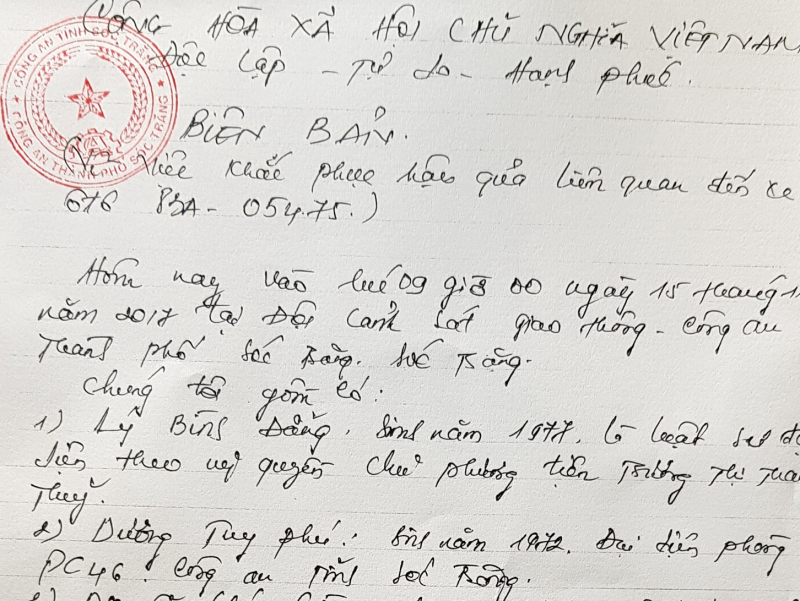 CÔNG HÒA XÃ HỘI CHỦ NGHĨA VIỆT NAM
Độc lập - Tự do - Hạnh phúc.
CÔNG AN TỈNH SÓC TRĂNG
CÔNG AN THÀNH PHỐ SÓC TRĂNG
BIÊN BẢN.
(V/v Việc khắc phục hậu quả liên quan đến xe
ôtô 83A - 054.75.)
Hôm nay vào lúc 09 giờ 00 ngày 15 tháng 1
năm 2017 tại Đội Cảnh sát giao thông - Công an
Thành phố Sóc Trăng. Sóc Trăng.
Chúng tôi gồm có:
1) Lý Bình Đẳng. Sinh năm 1977. là luật sư đại
diện theo uỷ quyền chủ phương tiện Trương Thị Thanh
Thuỷ.
2) Dương Tuy Phú: Sinh năm 1972. Đại diện phòng
PC46. Công an Tỉnh Sóc Trăng.